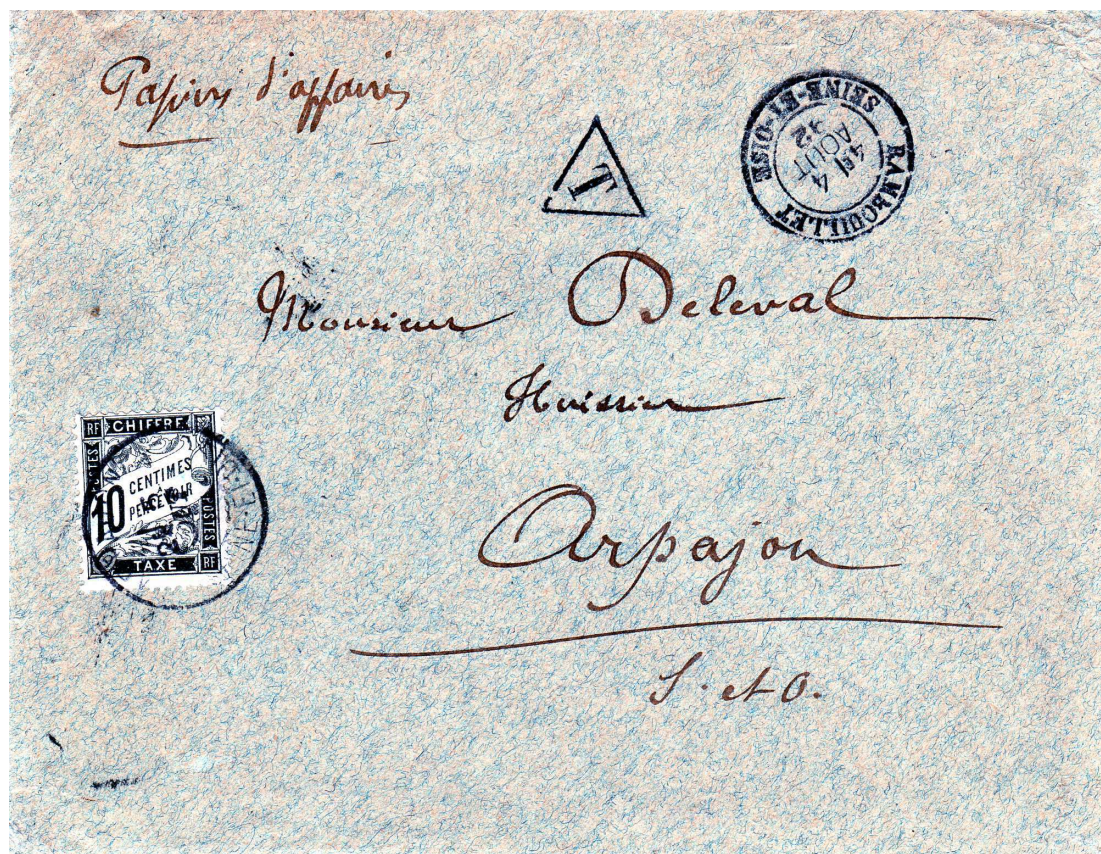 Papiers d'affaires
T
RAMBOUILLET
SEINE-ET-OISE
4E
4
AOUT
92
Monsieur Deleval
Huissier
RF CHIFFRE
POSTES
10 CENTIMES
A PERCEVOIR
POSTES
TAXE RF
Arpajon
S. et O.